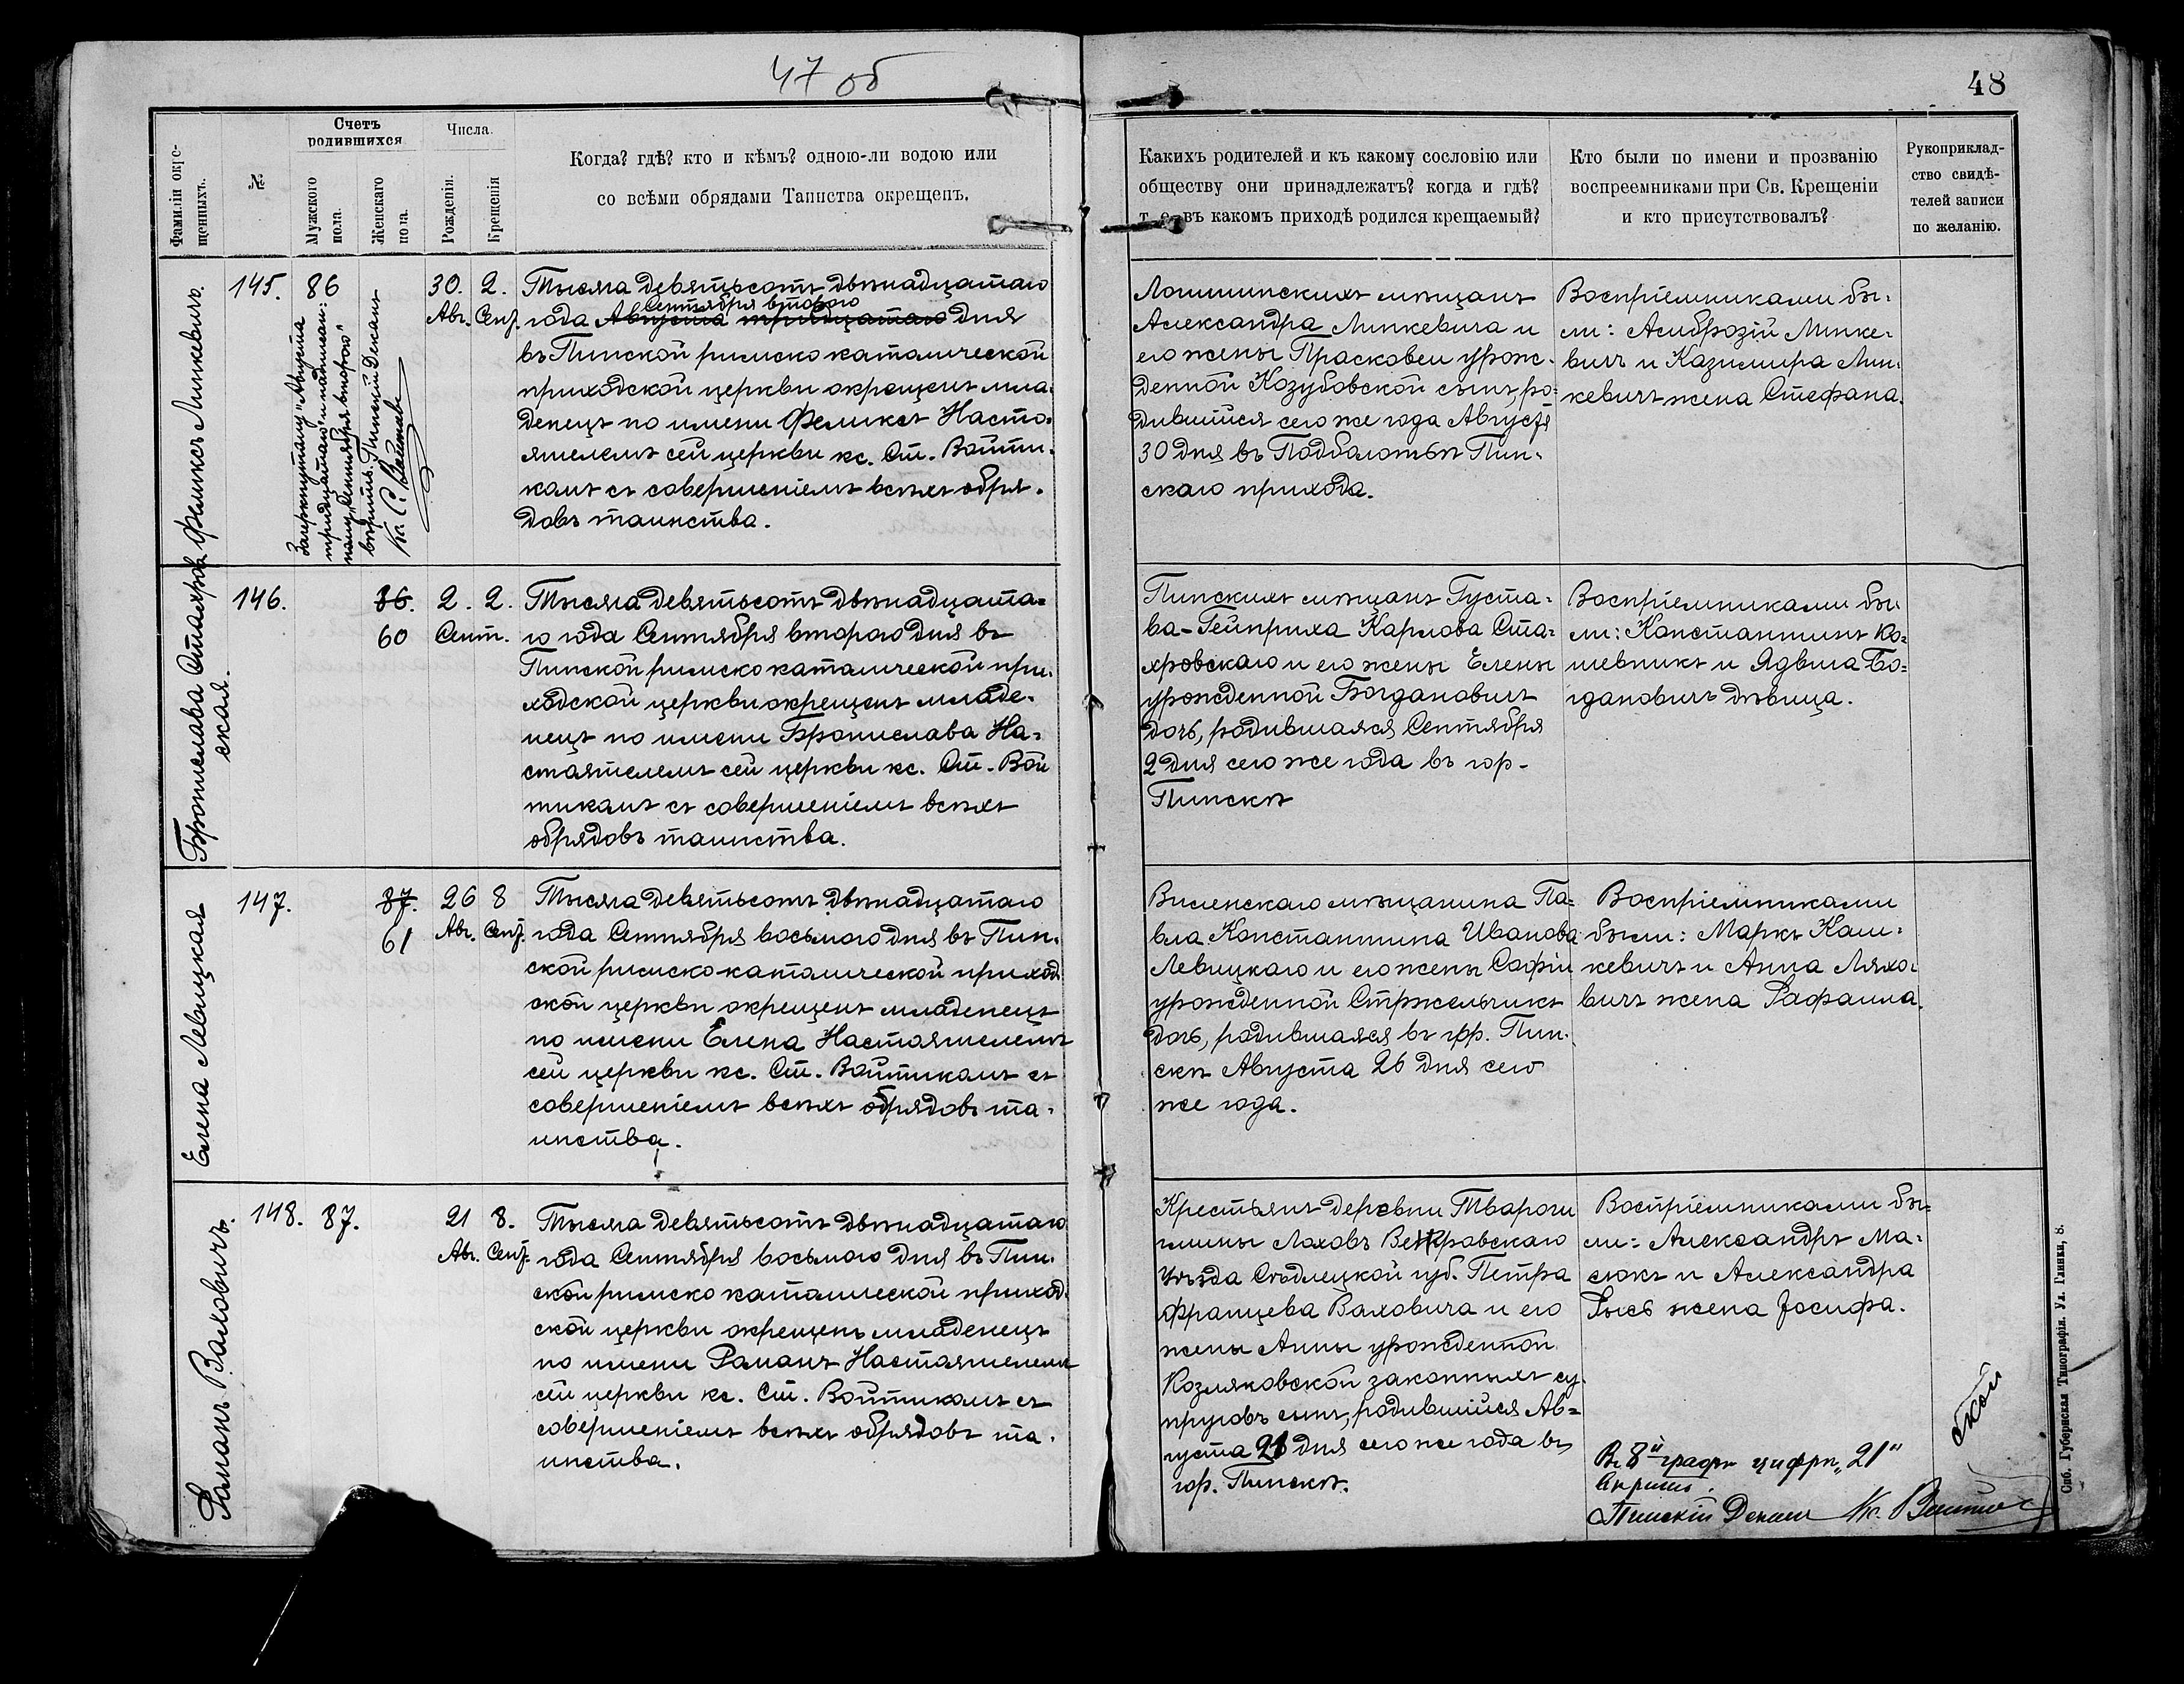 47 об
48
Фамиліи окре-
щенныхъ.
№
Счетъ
родившихся
Мужского
пола.
Женскаго
пола.
Числа.
Рожденія.
Крещенія
Когда? гдѣ? кто и кѣмъ? одною-ли водою или
со всѣми обрядами Таинства окрещенъ.
Какихъ родителей и къ какому сословію или
обществу они принадлежатъ? когда и гдѣ?
т. е. въ какомъ приходѣ родился крещаемый?
Кто были по имени и прозванію
воспреемниками при Св. Крещеніи
и кто присутствовалъ?
Рукоприклад-
ство свидѣ-
телей записи
по желанію.
Феликсъ Минкевичъ.
145.
86
Зачеркнутому "Августа
тридцатаго" и надписан-
ному "Сентября второго"
вѣрить. Пинскій Деканъ
Кс. С. Войтик
30. 2.
Авг. Сент.
Тысяча девятьсотъ двѣнадцатаго
Сентября второго
года Августа тридцатаго дня
въ Пинской римско католической
приходской церкви окрещенъ мла-
денецъ по имени Феликсъ Насто-
ятелемъ сей церкви кс. Ст. Войти-
комъ съ совершеніемъ всѣхъ обря-
довъ таинства.
Логишинскихъ мѣщанъ
Александра Минкевича и
его жены Прасковеи урож-
денной Козубовской сынъ, ро-
дившійся сего же года Августа
30 дня въ Подболотьѣ Пин-
скаго прихода.
Воспріемниками бы-
ли: Амброзій Минке-
вичъ и Казимира Мин-
кевичъ жена Стефана.
Бронислава Стахров-
ская.
146.
86.
60
2. 2.
Сент.
Тысяча девятьсотъ двѣнадцата-
го года Сентября второго дня въ
Пинской римско католической при-
ходской церкви окрещенъ младе-
нецъ по имени Бронислава На-
стоятелемъ сей церкви кс. Ст. Вой
тикомъ съ совершеніемъ всѣхъ
обрядовъ таинства.
Пинскихъ мѣщанъ Густа-
ва-Гейнриха Карлова Ста-
хровскаго и его жены Елены
урожденной Богдановичъ
дочь, родившаяся Сентября
2 дня сего же года въ гор.
Пинскѣ
Воспріемниками бы-
ли: Константинъ Ко-
шевникъ и Ядвига Бо-
гдановичъ дѣвица.
Елена Левицкая
147.
87.
61
26 8
Авг. Сент.
Тысяча девятьсотъ двѣнадцатаго
года Сентября восьмого дня въ Пин-
ской римско католической приход-
ской церкви окрещенъ младенецъ
по имени Елена Настоятелемъ
сей церкви кс. Ст. Войтикомъ съ
совершеніемъ всѣхъ обрядовъ та-
инства.
Виленскаго мѣщанина Па-
вла Константина Иванова
Левицкаго и его жены Софіи
урожденной Стржельчикъ
дочь, родившаяся въ гор. Пин-
скѣ Августа 26 дня сего
же года.
Воспріемниками
были: Маркъ Каш-
кевичъ и Анна Ляхо-
вичъ жена Рафаила.
Романъ Валовичъ.
148.
87.
21 8.
Авг. Сент.
Тысяча девятьсотъ двѣнадцатаго
года Сентября восьмого дня въ Пин-
ской римско католической приход-
ской церкви окрещенъ младенецъ
по имени Романъ Настоятелемъ
сей церкви кс. Ст. Войтикомъ съ
совершеніемъ всѣхъ обрядовъ та-
инства.
Крестьянъ деревни Твароги
гмины Лоховъ Венгровскаго
уѣзда Сѣдлецкой губ. Петра
Францева Валовича и его
жены Анны урожденной
Козляковской законныхъ су-
пруговъ сынъ, родившійся Ав-
густа 21 дня сего же года въ
гор. Пинскѣ.
Воспріемниками бы-
ли: Александръ Ма-
сюкъ и Александра
Рысь жена Іосифа.
Въ 8й графѣ цифрѣ "21"
вѣрить.
Пинскій Деканъ Кс. Войтик
Спб. Губернская Типографія. Ул. Глинки, 8.